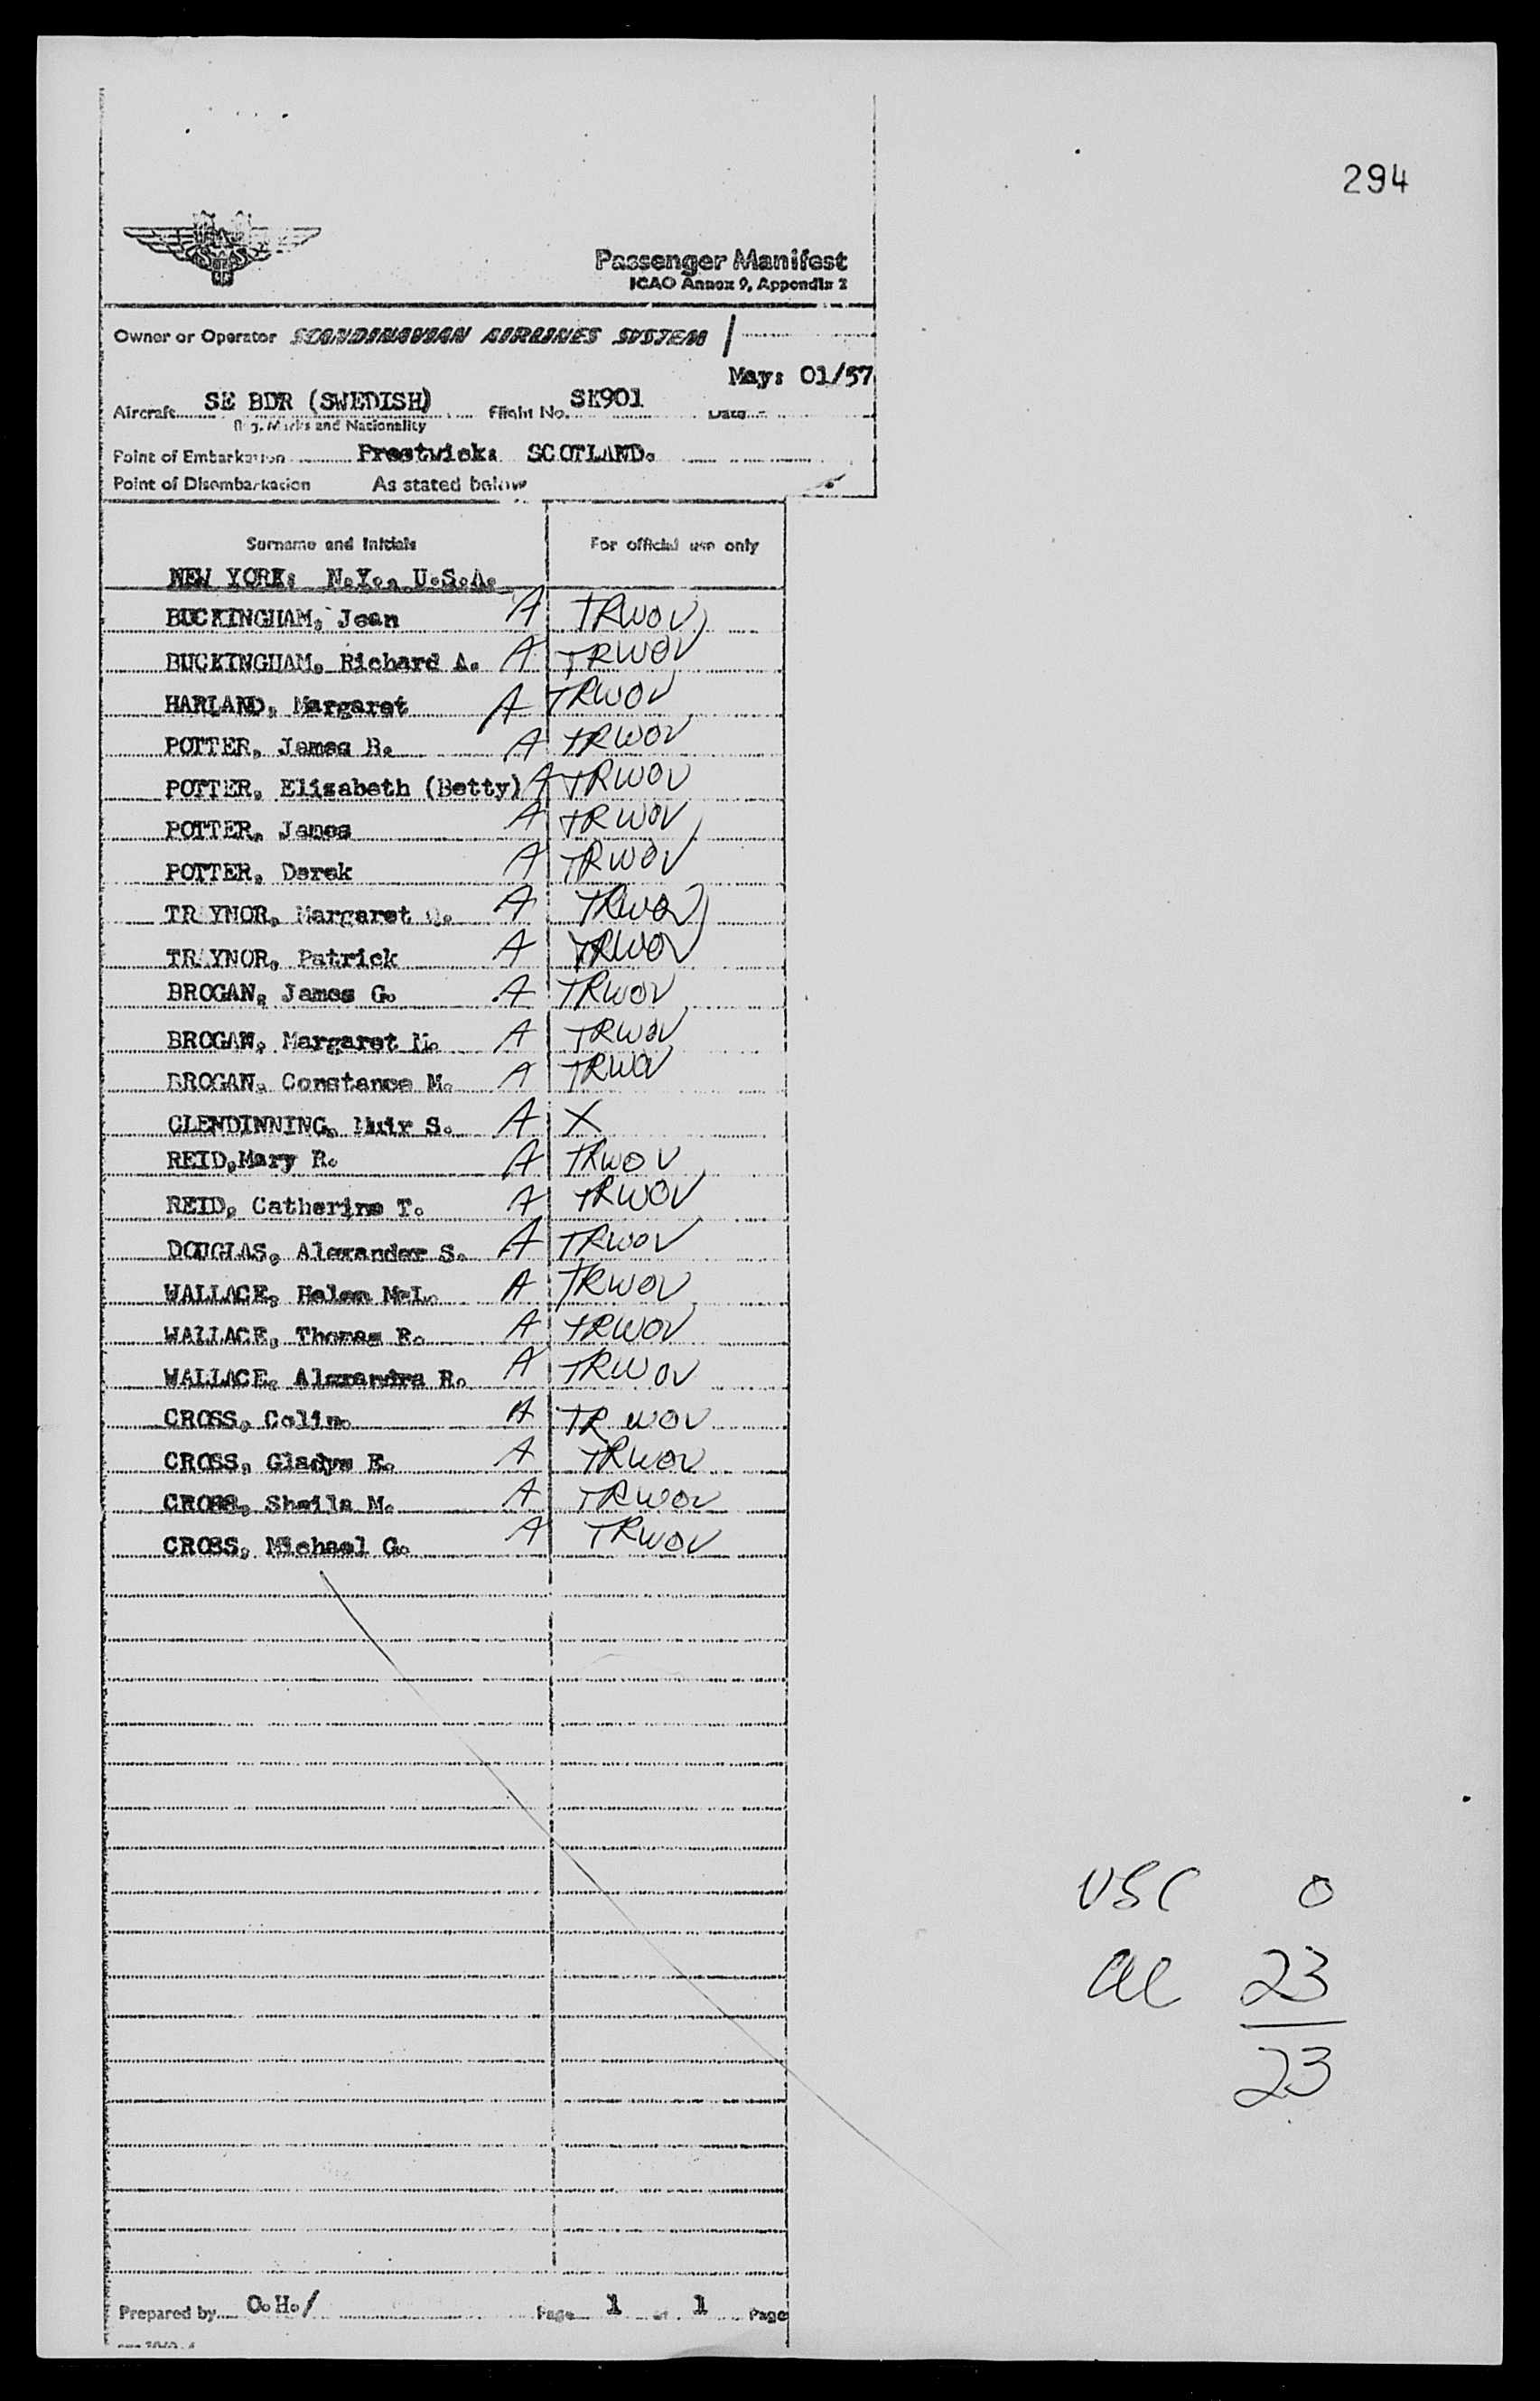 294
SAS
Passenger Manifest
ICAO Annex 9, Appendix 2
Owner or Operator SCANDINAVIAN AIRLINES SYSTEM /
May: 01/57
Aircraft SE BDR (SWEDISH) Flight No. SK901 Date
Reg. Marks and Nationality
Point of Embarkation Prestwick: SCOTLAND.
Point of Disembarkation As stated below
Surname and Initials For official use only
NEW YORK: N.Y., U.S.A.
BUCKINGHAM, Jean A TRWOV
BUCKINGHAM, Richard A. A TRWOV
HARLAND, Margaret A TRWOV
POTTER, James B. A TRWOV
POTTER, Elizabeth (Betty) A TRWOV
POTTER, James A TRWOV
POTTER, Derek A TRWOV
TRAYNOR, Margaret A TRWOV
TRAYNOR, Patrick A TRWOV
BROGAN, James G. A TRWOV
BROGAN, Margaret M. A TRWOV
BROGAN, Constance M. A TRWOV
GLENDINNING, Muir S. A X
REID, Mary R. A TRWOV
REID, Catherine T. A TRWOV
DOUGLAS, Alexander S. A TRWOV
WALLACE, Helen McL. A TRWOV
WALLACE, Thomas R. A TRWOV
WALLACE, Alexandra R. A TRWOV
CROSS, Colin. A TRWOV
CROSS, Gladys E. A TRWOV
CROSS, Sheila M. A TRWOV
CROSS, Michael G. A TRWOV
USC 0
al 23
23
Prepared by O.H./ Page 1 of 1 Page